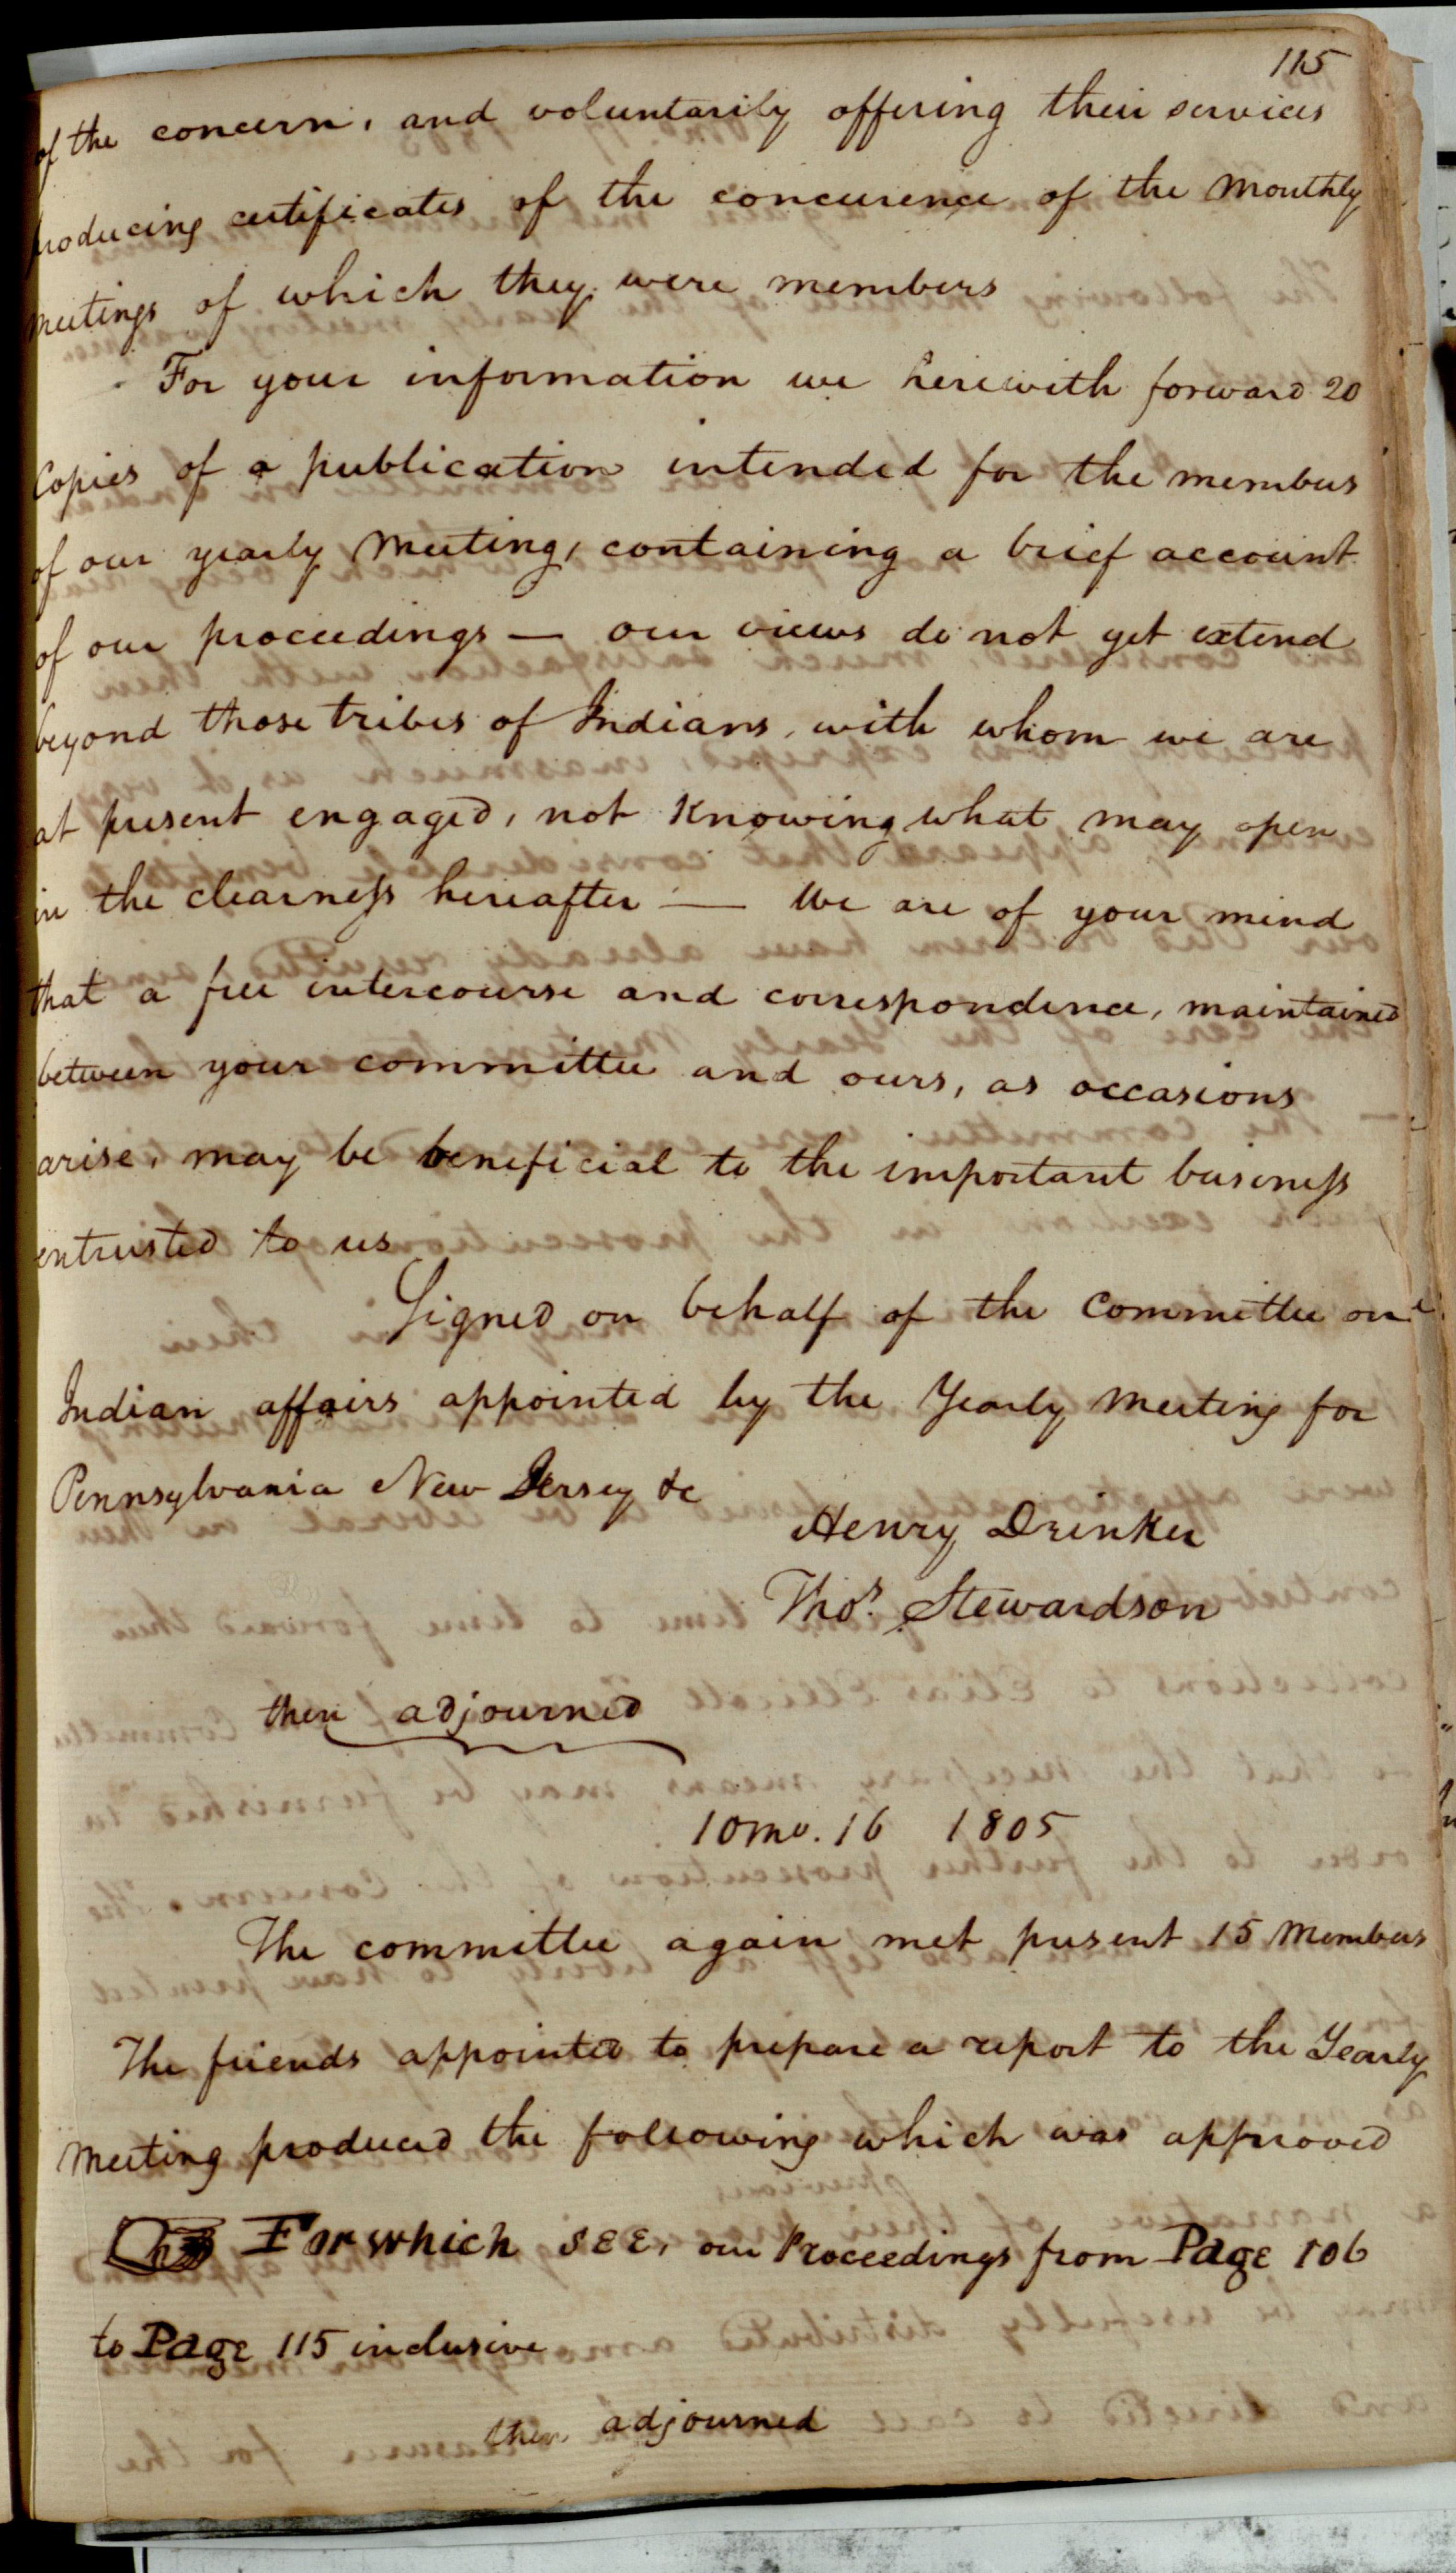 115
of the concern, and voluntarily offering their services
producing certificates of the concurence of the Monthly
meetings of which they were members
For your information we herewith forward 20
Copies of a publication intended for the members
of our yearly Meeting, containing a brief account
of our proceedings — our views do not yet extend
beyond those tribes of Indians, with whom we are
at present engaged, not Knowing what may open
in the clearness hereafter — We are of your mind
that a free intercourse and correspondence, maintained
between your committee and ours, as occasions
arise, may be beneficial to the important business
entrusted to us
Signed on behalf of the Committee on
Indian affairs appointed by the Yearly Meeting for
Pennsylvania New Jersey &c
Henry Drinker
Thos. Stewardson
then adjourned
10mo. 16 1805
The committee again met present 15 Members
The friends appointed to prepare a report to the Yearly
Meeting produced the following which was approved
☞ For which SEE, our Proceedings from Page 106
to Page 115 inclusive
then adjourned